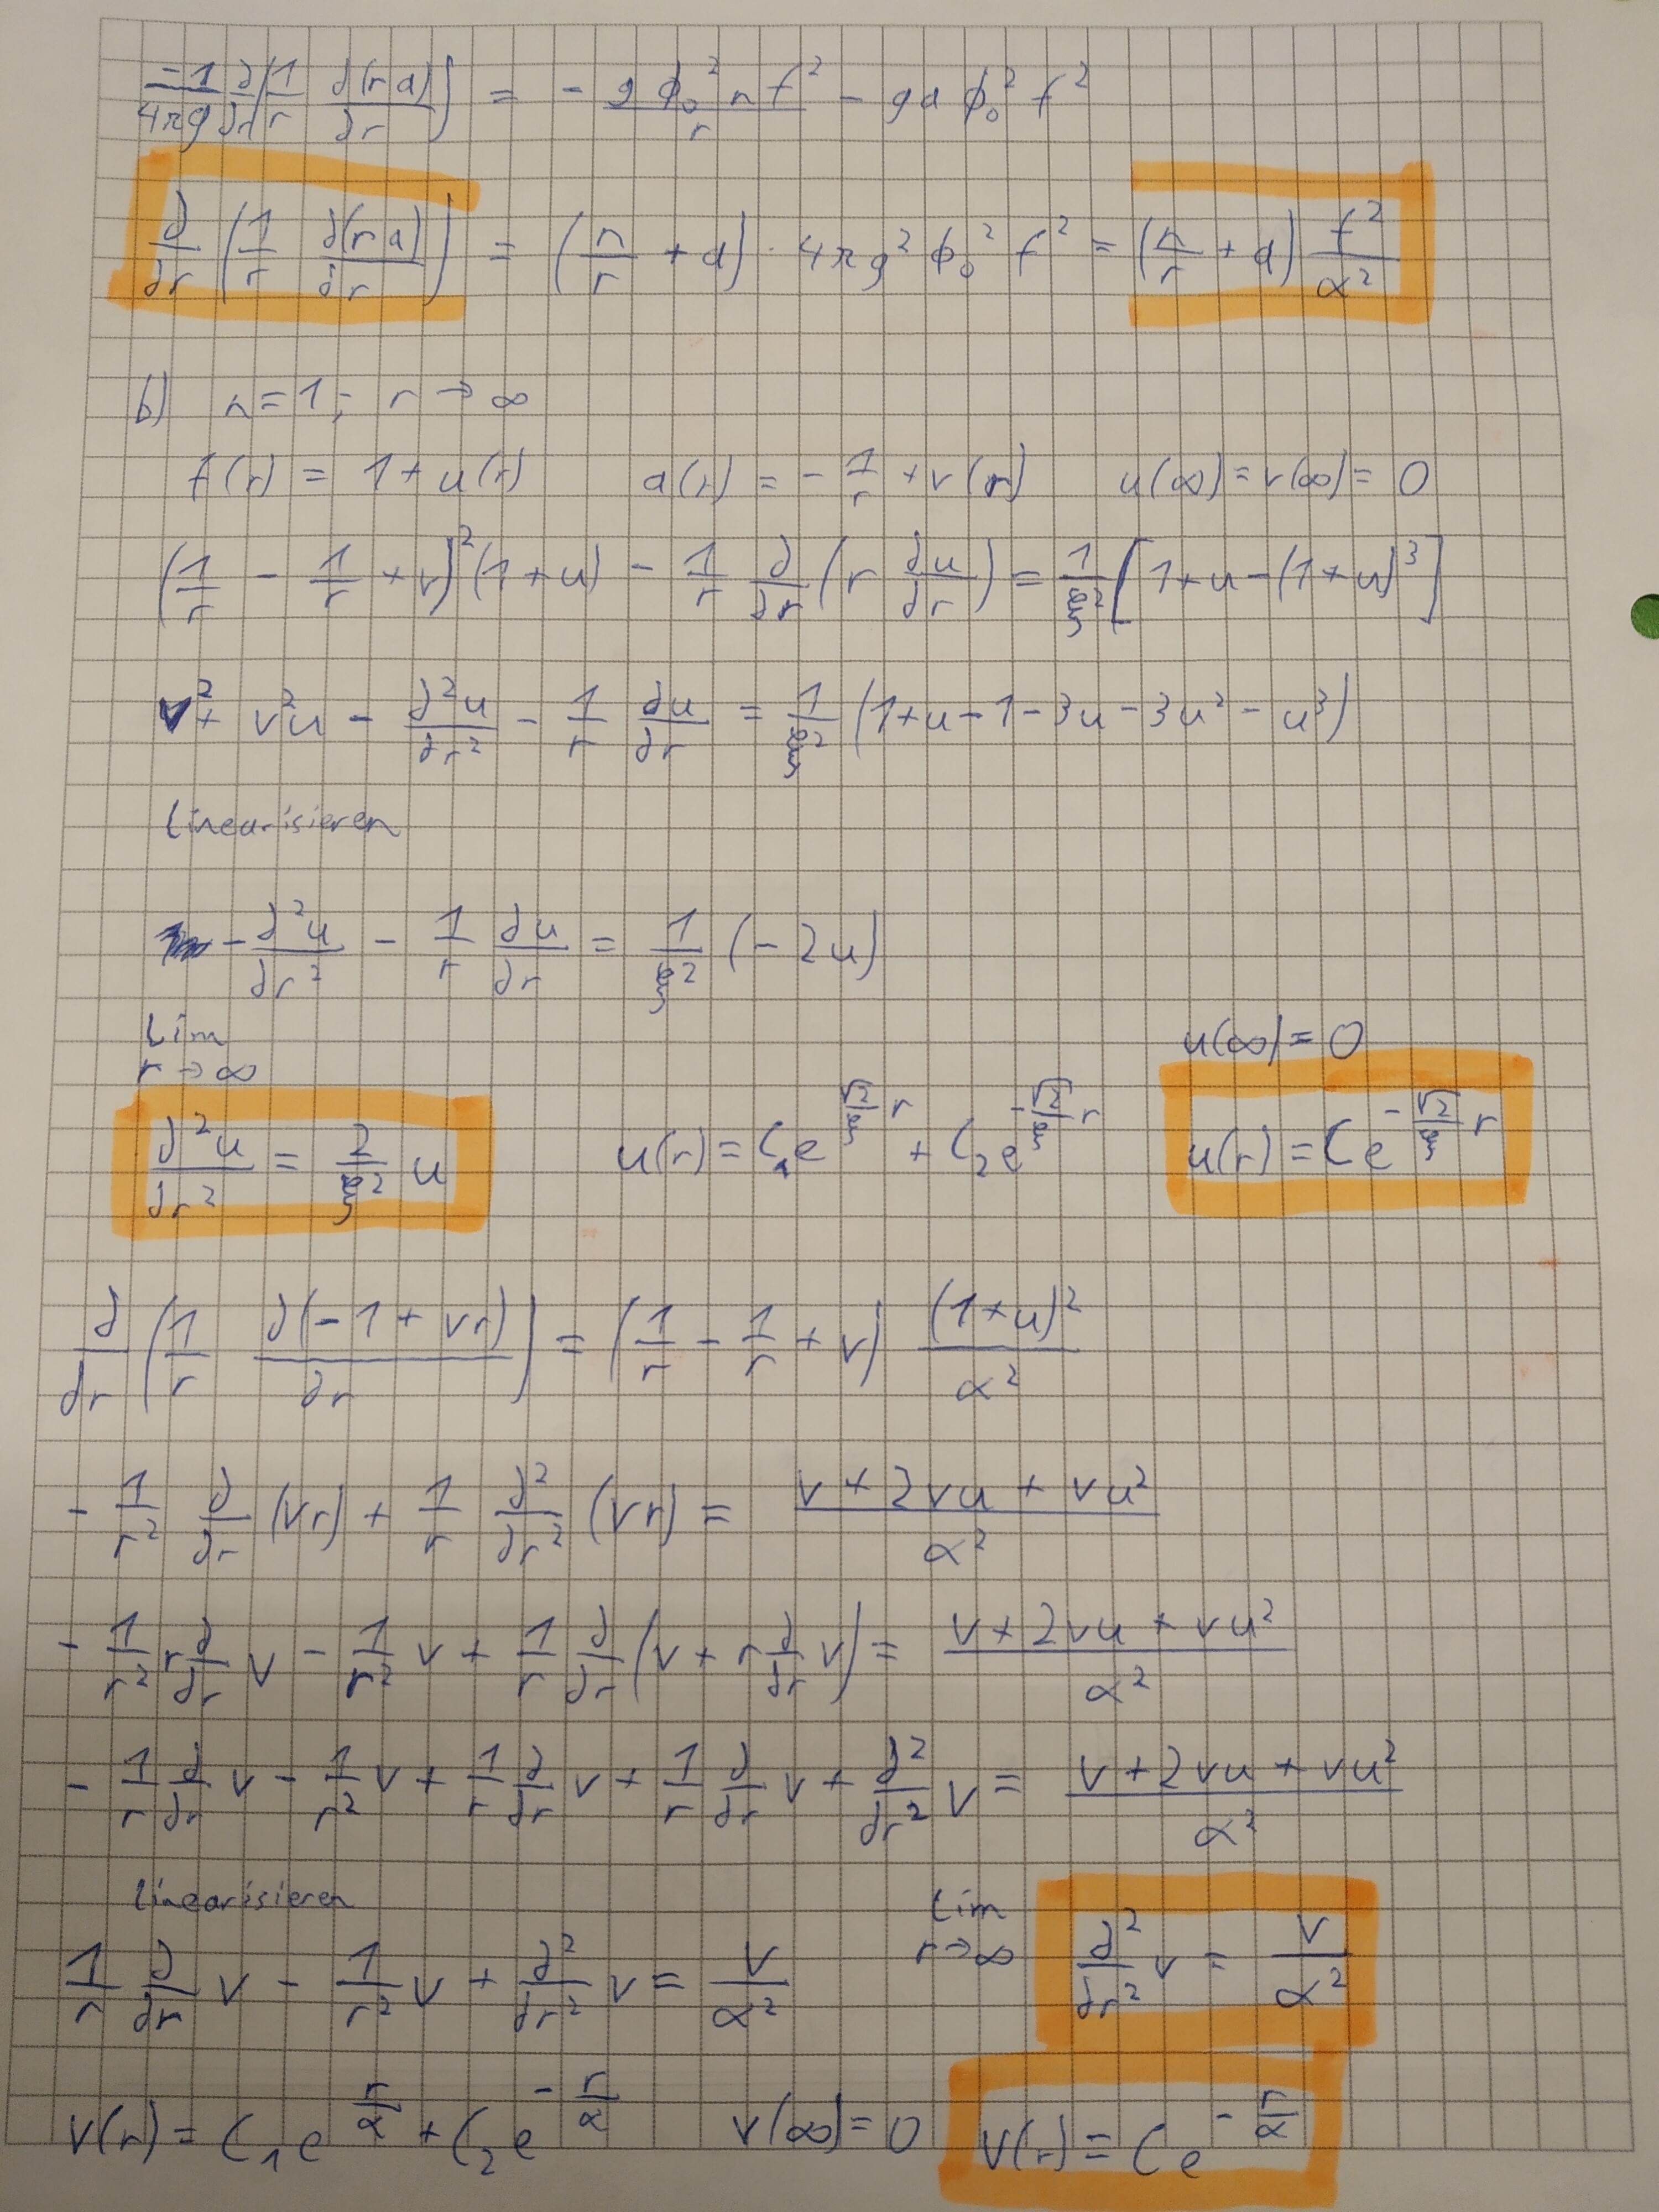 -1/4πg ∂/∂r(1/r ∂(ra)/∂r) = - gϕ₀²nf²/r - gaϕ₀²f²
∂/∂r (1/r ∂(ra)/∂r) = (n/r + a) · 4πg²ϕ₀²f² = (n/r + a) f²/α²
b) n=1; r→∞
f(r) = 1+u(r) a(r) = -1/r + v(r) u(∞)=v(∞)=0
(1/r - 1/r + v)²(1+u) - 1/r ∂/∂r (r ∂u/∂r) = 1/ξ² [1+u-(1+u)³]
v² + v²u - ∂²u/∂r² - 1/r ∂u/∂r = 1/ξ² (1+u-1-3u-3u²-u³)
Linearisieren
-∂²u/∂r² - 1/r ∂u/∂r = 1/ξ² (-2u)
Lim r→∞ u(∞)=0
∂²u/∂r² = 2/ξ² u u(r) = C₁e^(√2/ξ r) + C₂e^(-√2/ξ r) u(r) = Ce^(-√2/ξ r)
∂/∂r (1/r ∂(-1+vr)/∂r) = (1/r - 1/r + v) (1+u)²/α²
- 1/r² ∂/∂r (vr) + 1/r ∂²/∂r² (vr) = (v+2vu+vu²)/α²
- 1/r² r ∂/∂r v - 1/r² v + 1/r ∂/∂r (v + r ∂/∂r v) = (v+2vu+vu²)/α²
- 1/r ∂/∂r v - 1/r² v + 1/r ∂/∂r v + 1/r ∂/∂r v + ∂²/∂r² v = (v+2vu+vu²)/α²
Linearisieren
1/r ∂/∂r v - 1/r² v + ∂²/∂r² v = v/α² Lim r→∞ ∂²/∂r² v = v/α²
v(r) = C₁e^(r/α) + C₂e^(-r/α) v(∞)=0 v(r) = Ce^(-r/α)